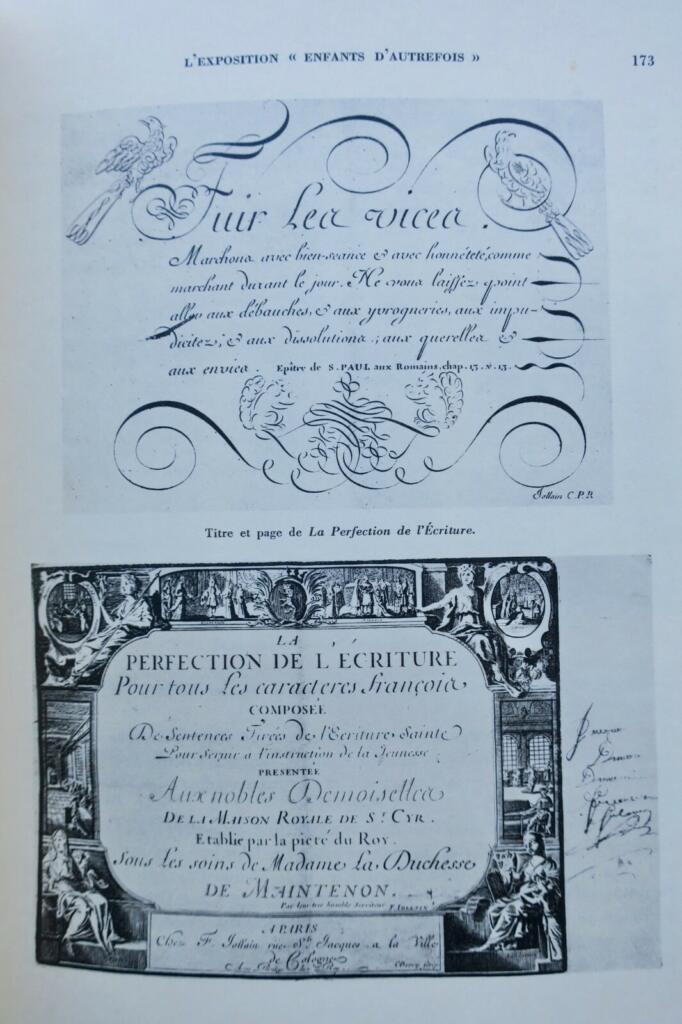 L'EXPOSITION « ENFANTS D'AUTREFOIS »
173
Fuir Les vices.
Marchons avec bien-seance & avec honnéteté, comme
marchant durant le jour. Ne vous laissez point
aller aux débauches, & aux yvrogneries, aux impu-
dicitez, & aux dissolutions; aux querelles &
aux envies. Epître de S. PAUL aux Romains, chap. 13. v. 13.
Jollain C.P.R
Titre et page de La Perfection de l'Écriture.
LA
PERFECTION DE L'ÉCRITURE
Pour tous Les caracteres François
COMPOSÉE
De Sentences Tirées de l'Ecriture Sainte
Pour Servir a l'instruction de la Jeunesse
PRESENTÉE
Aux nobles Demoiselles
DE LA MAISON ROYALE DE St. CYR.
Etablie par la pieté du Roy.
Sous Les soins de Madame La Duchesse
DE MAINTENON.
Par leur tres humble Serviteur F. JOLLAIN
A PARIS
Chez F. Jollain rue St. Jacques a la Ville
de Cologne